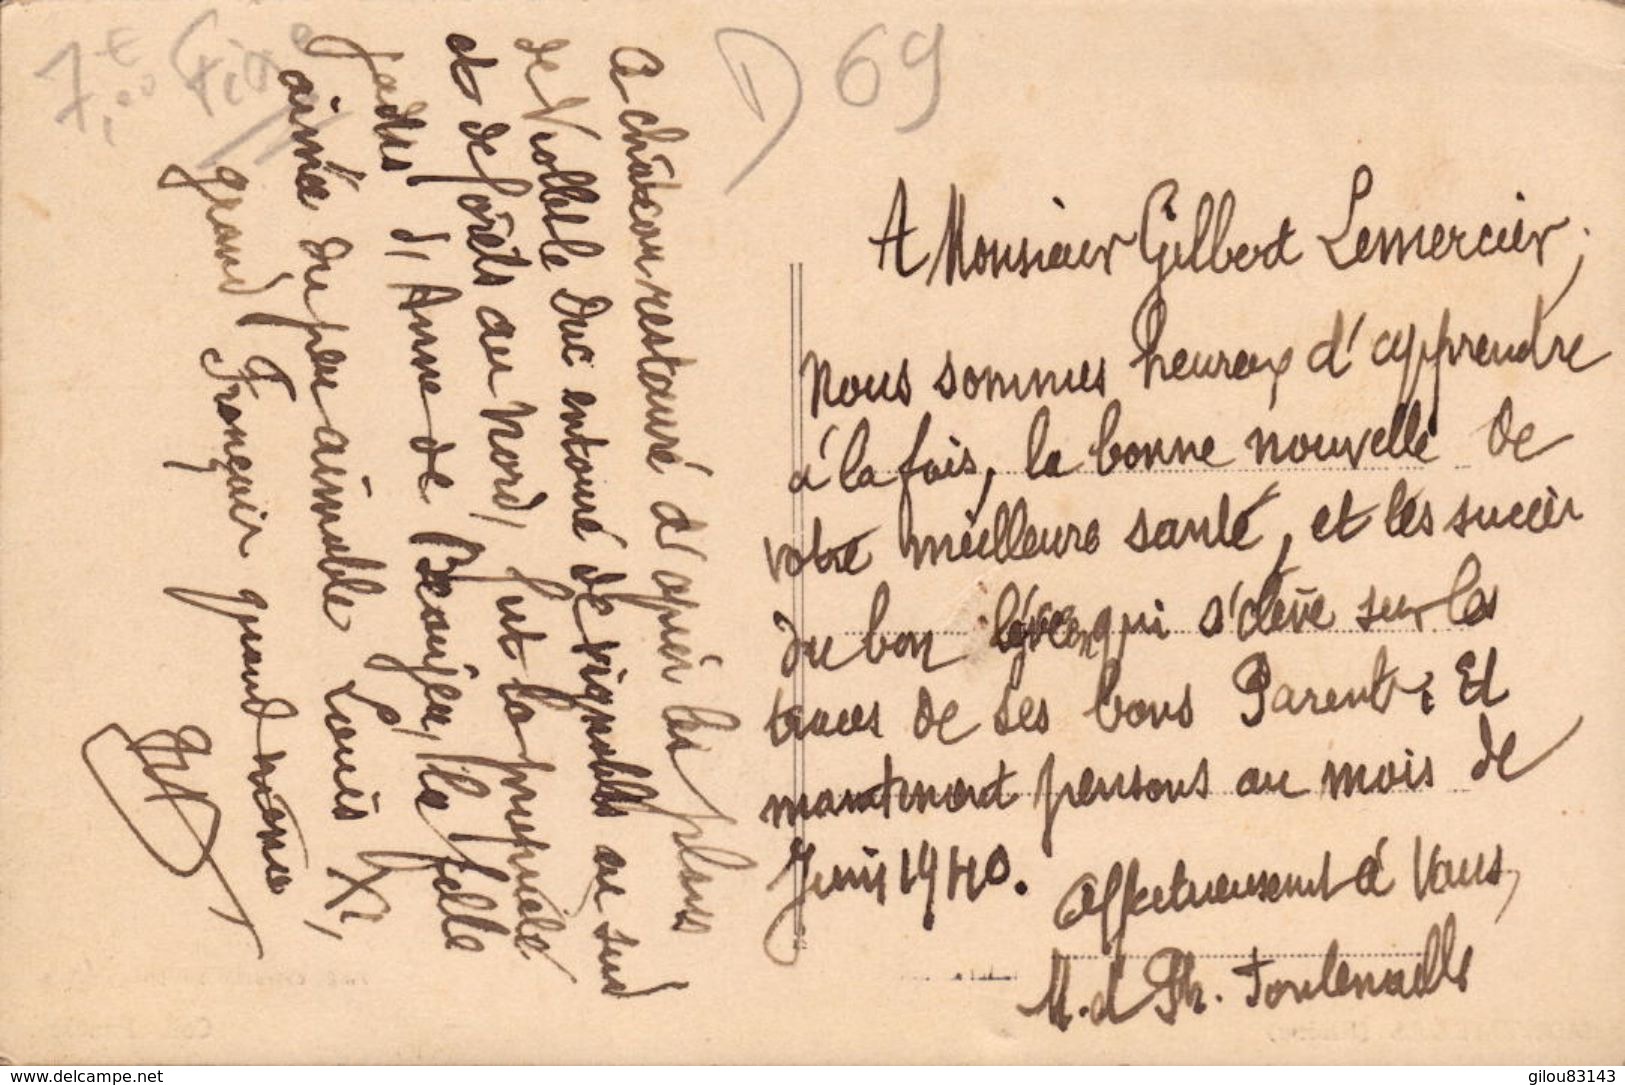 7.E
D 69
Ce château restauré d'après les plans
de Viollet le Duc entouré de vignobles au sud
et de forêts au Nord, fut la propriété
jadis d'Anne de Beaujeu, la fille
aimée du peu aimable Louis XI,
grand Français quand même
A Monsieur Gilbert Lemercier,
Nous sommes heureux d'apprendre
à la fois, la bonne nouvelle de
votre meilleure santé, et les succès
du bon qui s'élève sur les
traces de ses bons Parents. Et
maintenant pensons au mois de
Juin 1940.
affectueusement à Vous,
M. et Ph. Fontenaille
www.delcampe.net
gilou83143